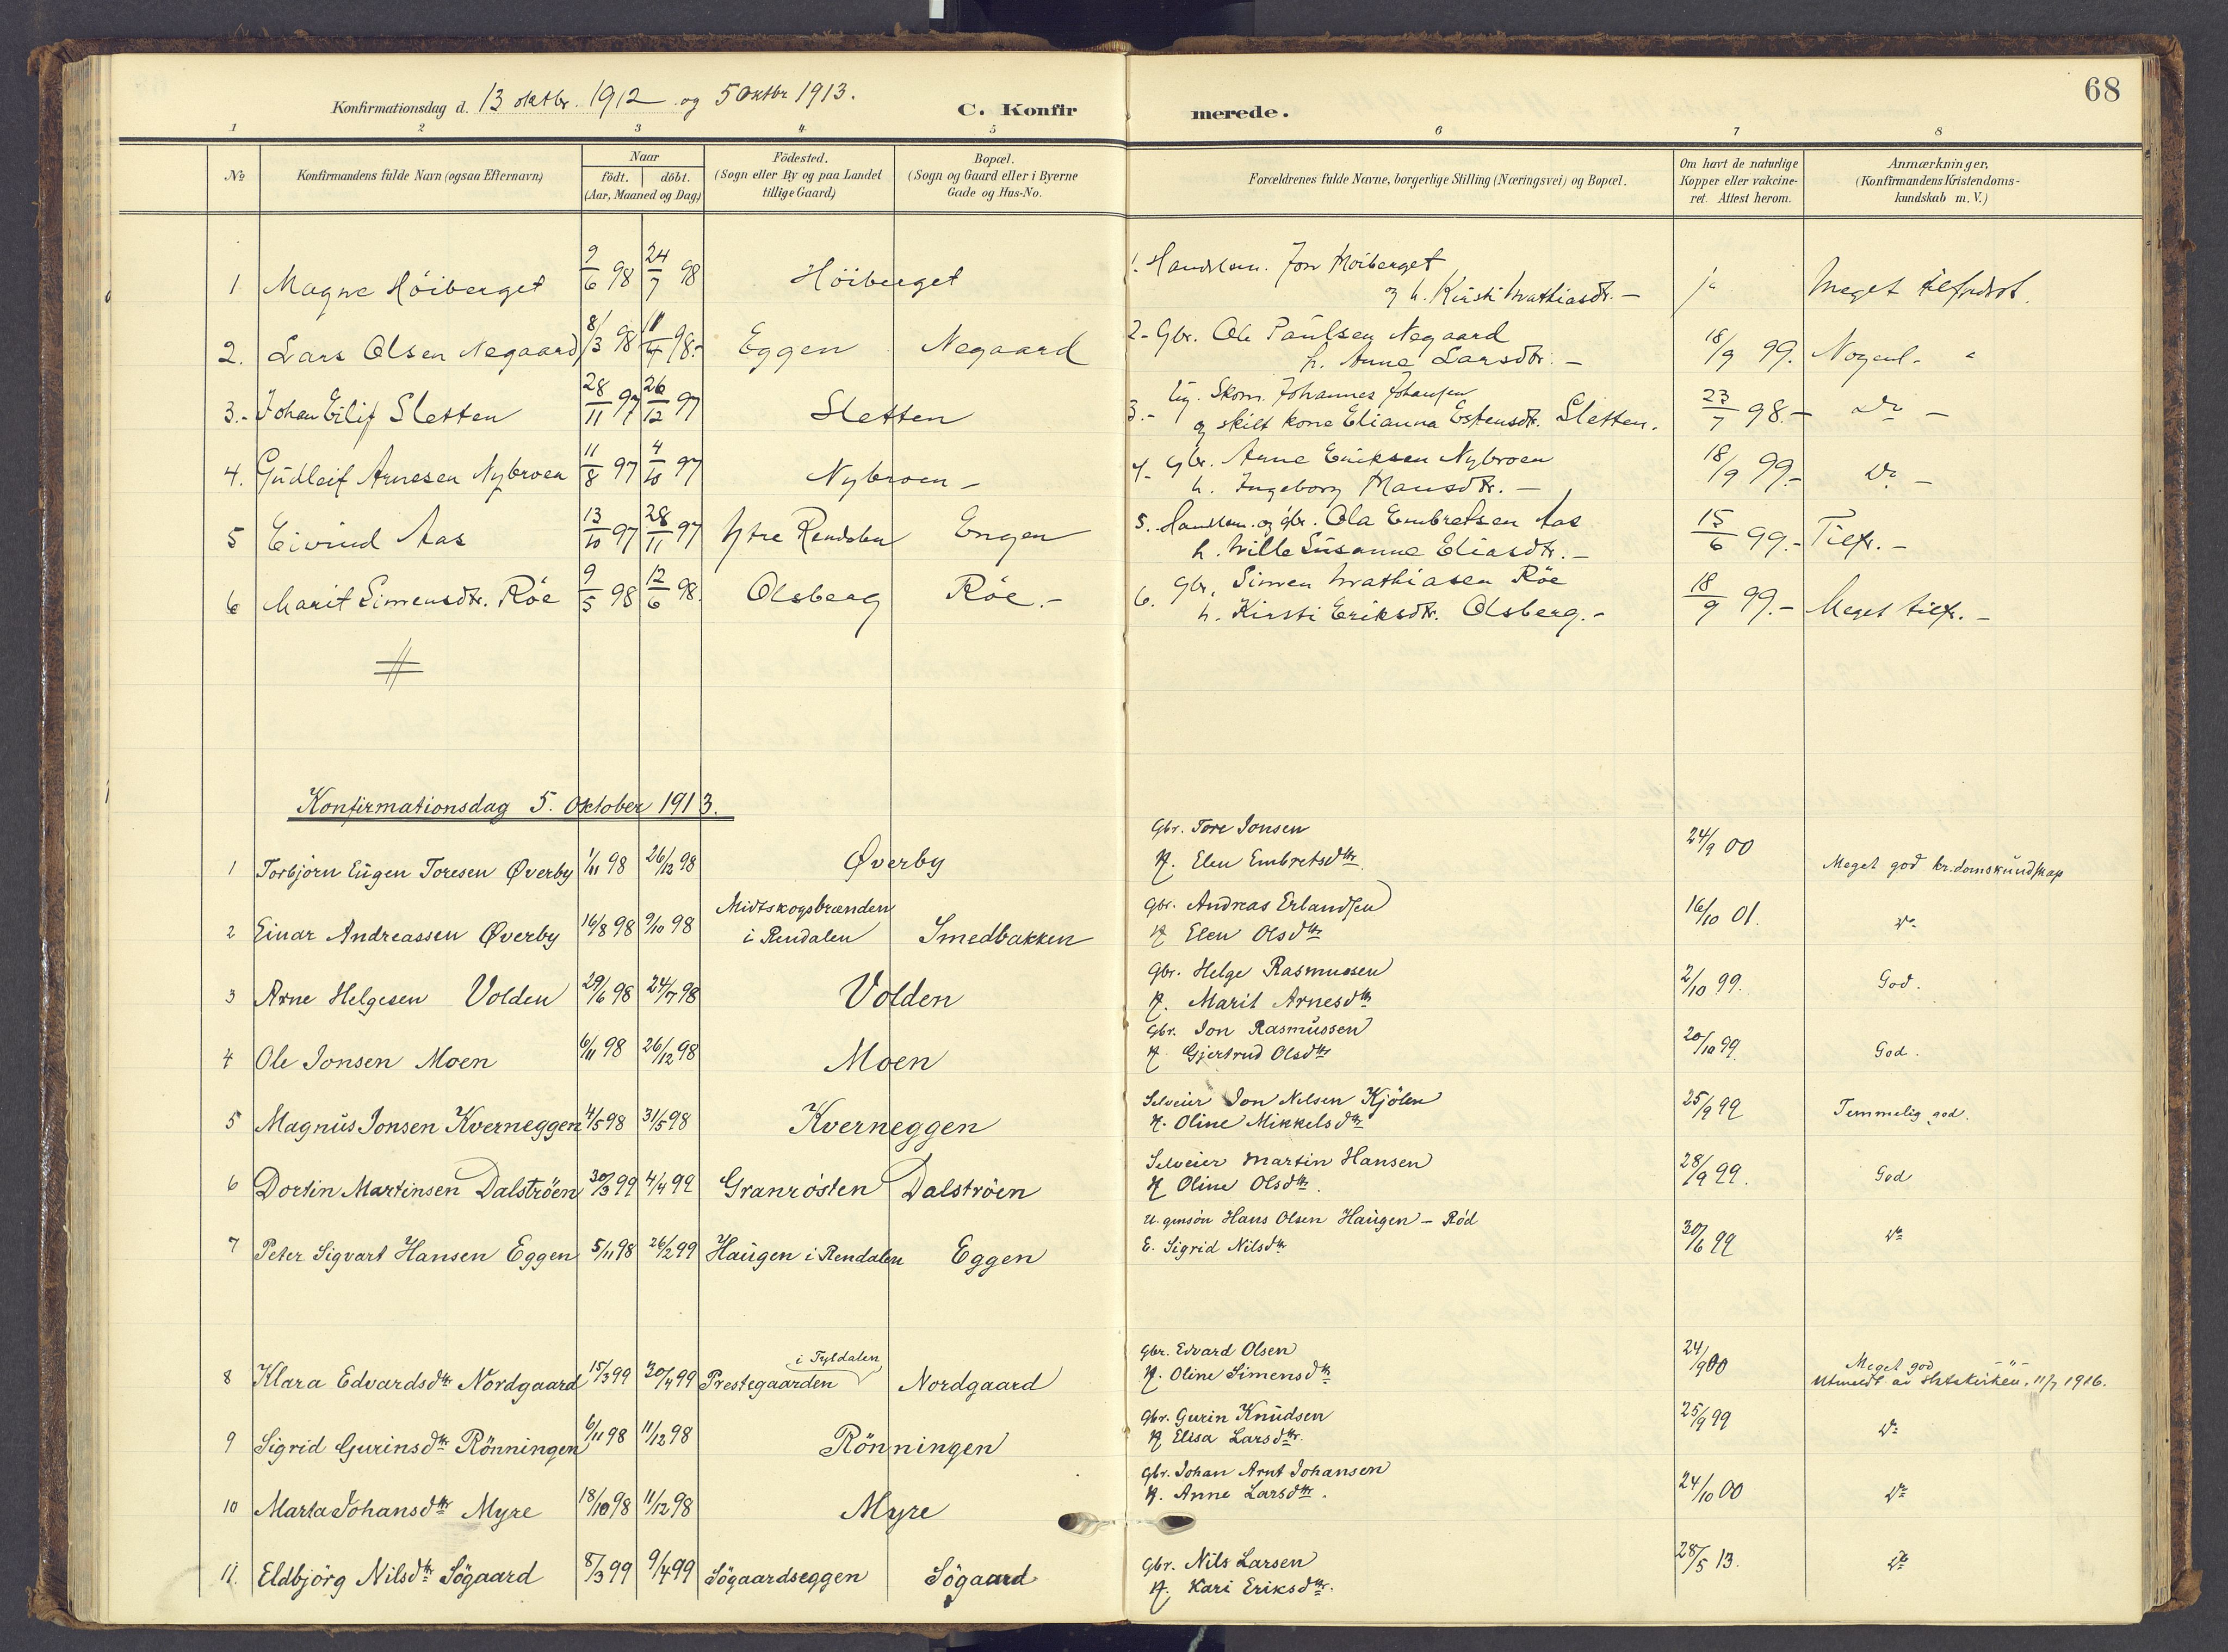 68
Konfirmationsdag d. 13 oktbr. 1912 og 5 Oktbr 1913.
C. Konfirmerede.
1 2 3 4 5 6 7 8
No
Konfirmandens fulde Navn (ogsaa Efternavn)
Naar
født. døbt.
(Aar, Maaned og Dag.)
Födested.
(Sogn eller By og paa Landet
tillige Gaard)
Bopæl.
(Sogn og Gaard eller i Byerne
Gade og Hus-No.
Forældrenes fulde Navne, borgerlige Stilling (Næringsvei) og Bopæl.
Om havt de naturlige
Kopper eller vakcine-
ret. Attest herom.
Anmærkninger.
(Konfirmandens Kristendoms-
kundskab m. V.)
1 Magne Höiberget 9/6 98 24/7 98 Höiberget 1. Jon Höiberget
og h. Kirsti Mathiasdtr. – ja Meget
2. Lars Olsen Negaard 8/3 98 11/4 98.- Eggen Negaard 2- Gbr. Ole Paulsen Negaard
h. Anne Larsdtr. – 18/9 99. Nogenl.
3.- Johan Eilif Sletten 28/11 97 26/12 97 Sletten 3.- Skom. Johannes Johansen
og skilt kone Elianna Estensdtr. Sletten. 23/7 98.– Do –
4. Gudleif Arnesen Nybroen 11/8 97 4/10 97 Nybroen – 4- Gbr. Arne Eriksen Nybroen
h. Ingeborg Hansdtr. – 18/9 99.- Do –
5 Eivind Aas 13/10 97 28/11 97 Ytre Rendalen Engen 5. og gbr. Ola Embretsen Aas
h. Susanne Eliasdtr. – 15/6 99.- Tilfr. –
6 Marit Simensdtr. Röe 9/5 98 12/6 98. Olsberg Röe.- 6. Gbr. Simen Mathiasen Röe
h. Kirsti Eriksdtr. Olsberg.- 18/9 99.- Meget tilfr. –
Konfirmationsdag 5. Oktober 1913.
1 Torbjörn Eugen Toresen Øverby 1/11 98 26/12 98 Øverby Gbr. Tore Jonsen
H. Elen Embretsdtr. 24/9 00 Meget god kr.domskundskap
2 Einar Andreassen Øverby 16/8 98 9/10 98 Midtskogsbrænden
i Rendalen Smedbakken Gbr. Andreas Erlandsen
H Elen Olsdtr 16/10 01. Do
3 Arne Helgesen Volden 29/6 98 24/7 98 Volden Gbr. Helge Rasmussen
H. Marit Arnesdtr 2/10 99. God.
4 Ole Jonsen Moen 6/11 98 26/12 98 Moen Gbr. Jon Rasmussen
H. Gjertrud Olsdtr 20/10 99. God.
5 Magnus Jonsen Kverneggen 4/5 98 31/5 98 Kverneggen Selveier Jon Nilsen Kjölen
H. Oline Mikkelsdtr 25/9 99 Temmelig god.
6 Dortin Martinsen Dalströen 30/3 99 4/4 99 Granrösten Dalströen Selveier Martin Hansen
H Oline Olsdtr. 28/9 99. God
7 Peter Sigvart Hansen Eggen 5/11 98 26/2 99 Haugen i Rendalen Eggen Hans Olsen Haugen – Röd
E. Sigrid Nilsdtr 30/6 99 Do
8 Klara Edvardsdtr Nordgaard 15/3 99 30/4 99 i Tyldalen
Prestegaarden Nordgaard Gbr. Edvard Olsen
H. Oline Simensdtr 24/9 00 Meget god –"–
Utmeldt av statskirken. 11/7 1916.
9 Sigrid Gurinsdtr Rönningen 6/11 98 11/12 98 Rönningen Gbr. Gurin Knudsen
H Elisa Larsdtr. 25/9 99 Do
10 Marta Johansdtr Myre 18/10 98 11/12 98 Myre Gbr. Johan Arnt Johansen
H. Anne Larsdtr. 24/10 00 Do
11. Eldbjörg Nilsdtr Sögaard 8/3 99 9/4 99 Sögaardseggen Sögaard Gbr. Nils Larsen
H. Kari Eriksdtr. 28/5 13. Do